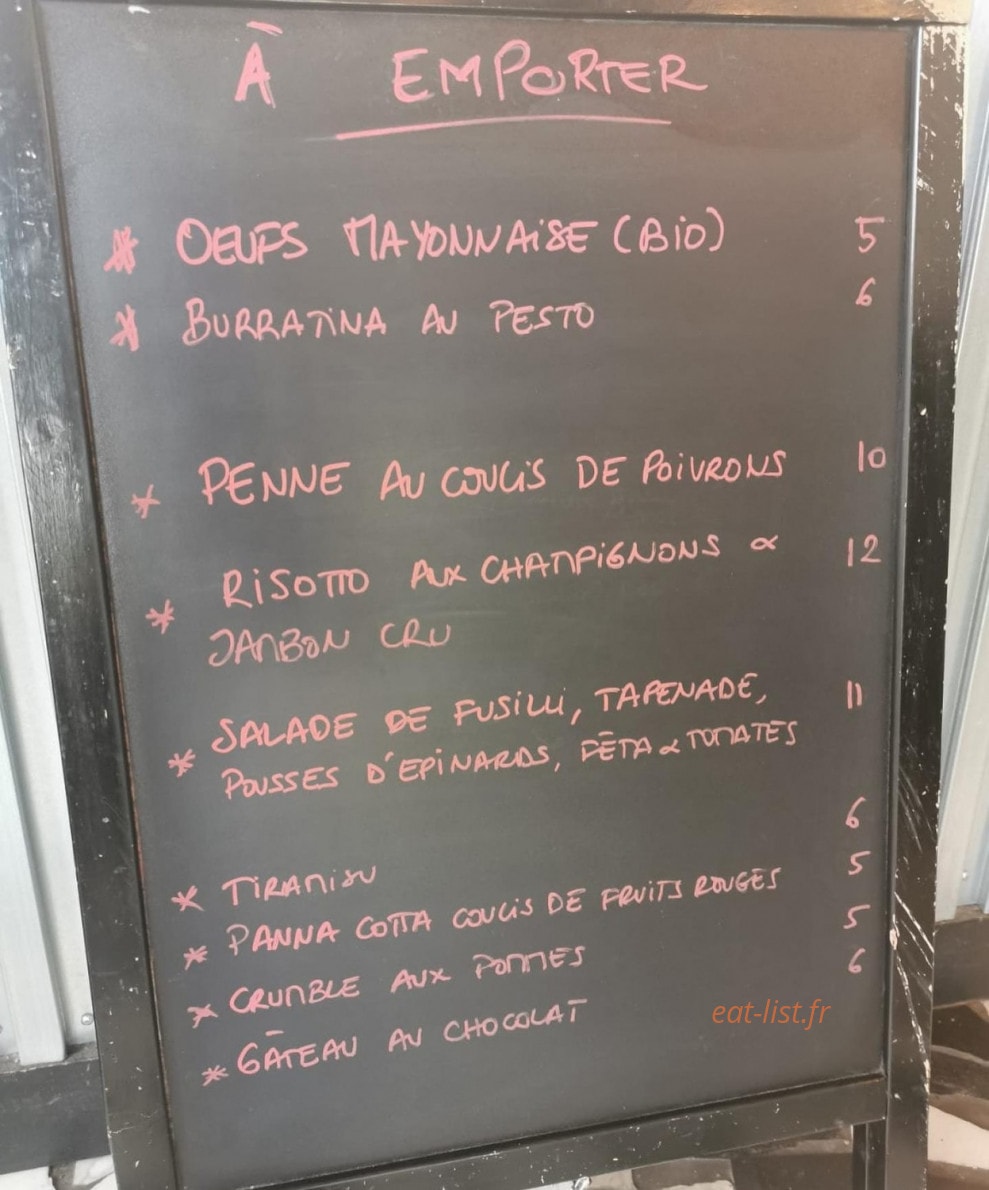 À EMPORTER
* OEUFS MAYONNAISE (BIO) 5
* BURRATINA AU PESTO 6
* PENNE AU COULIS DE POIVRONS 10
* RISOTTO AUX CHAMPIGNONS & 12
JAMBON CRU
* SALADE DE FUSILLI, TAPENADE, 11
POUSSES D'EPINARDS, FÊTA & TOMATES
* TIRAMISU 6
* PANNA COTTA COULIS DE FRUITS ROUGES 5
* CRUMBLE AUX POMMES 5
* GÂTEAU AU CHOCOLAT 6
eat-list.fr